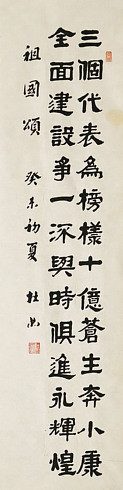 三個代表為榜樣十億蒼生奔小康
全面建設爭一流與時俱進永輝煌
祖國頌 癸未初夏 杜